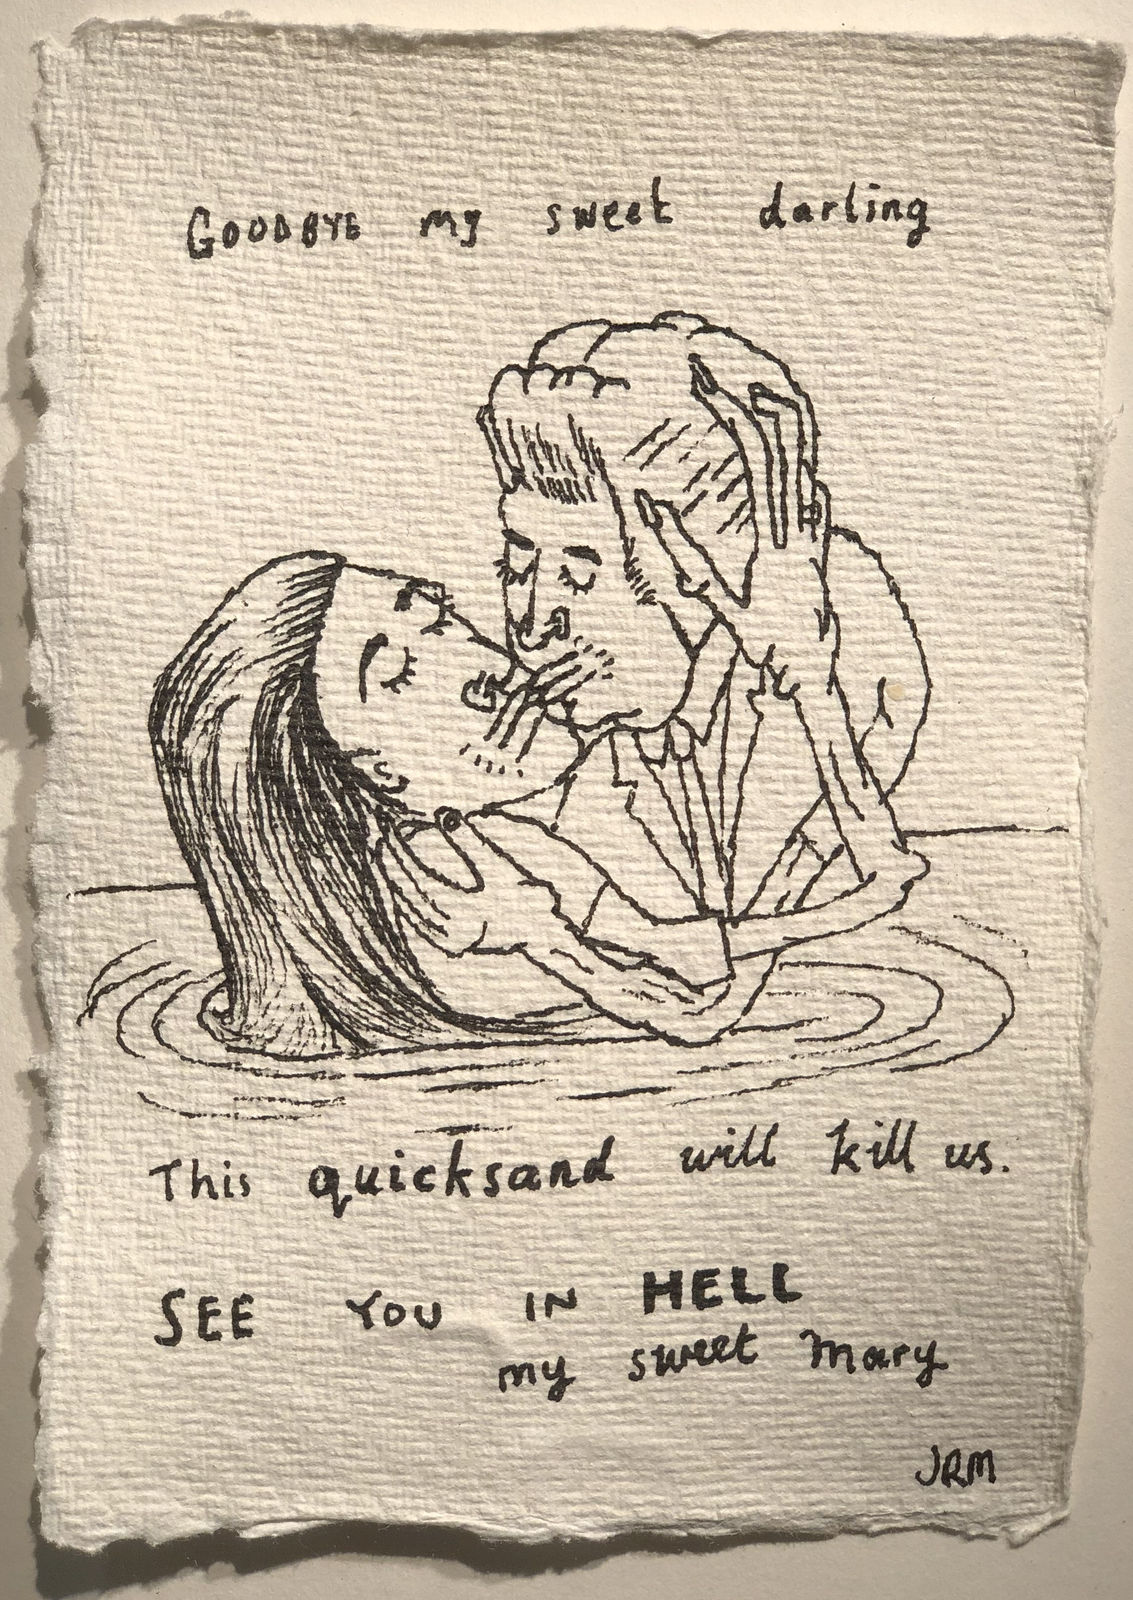 GOODBYE my sweet darling
This quicksand will kill us.
SEE YOU IN HELL
my sweet Mary
JRM